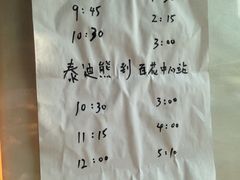 9:45 2:15
10:30 3:00
泰迪熊到百花中心站
10:30 3:00
11:15 4:00
12:00 5:10